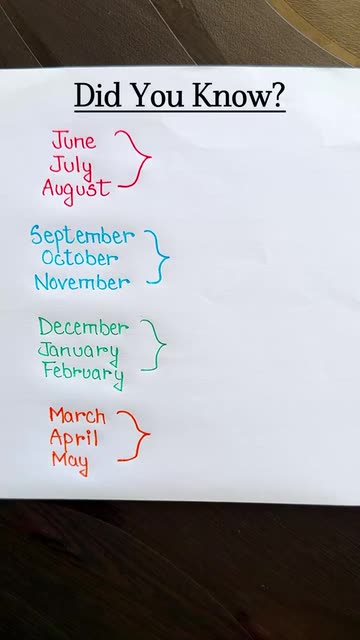 Did You Know?
June
July
August
September
October
November
December
January
February
March
April
May